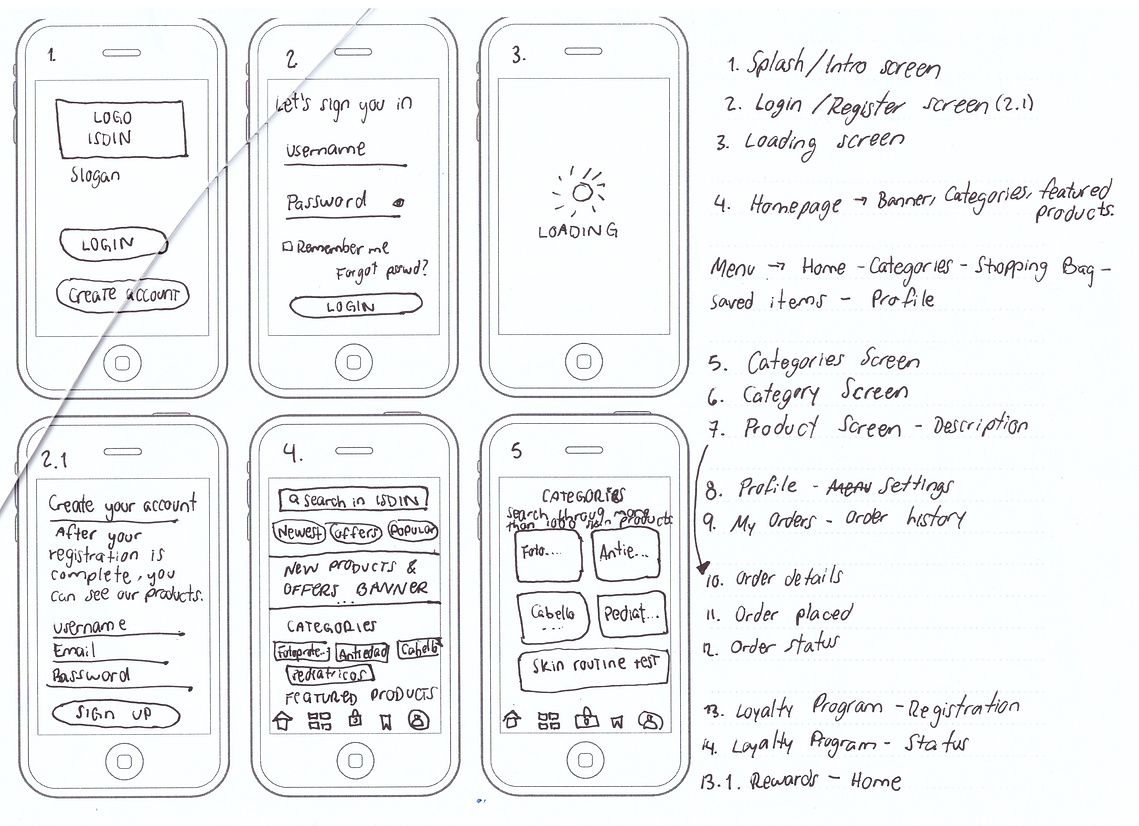 1.
LOGO
ISDIN
Slogan
LOGIN
Create account
2.
Let's sign you in
username
Password
Remember me
Forgot pswd?
LOGIN
3.
LOADING
2.1
Create your account
After your
registration is
complete, you
can see our products.
username
Email
Password
SIGN UP
4.
search in ISDIN
Newest offers Popular
NEW PRODUCTS &
OFFERS BANNER
...
CATEGORIES
Fotoprote.. Antiedad Cabello
Pediatricos
FEATURED PRODUCTS
5
CATEGORIES
search throug more
than 1000 skin products
Foto.... Antie...
Cabello Pediat...
...
Skin routine test
1. Splash/Intro screen
2. Login/Register screen (2.1)
3. Loading screen
4. Homepage → Banner, Categories, featured
products.
Menu → Home - Categories - Shopping Bag -
saved items - Profile
5. Categories Screen
6. Category Screen
7. Product Screen - Description
8. Profile - Menu Settings
9. My Orders - order history
10. Order details
11. Order placed
12. Order status
13. Loyalty Program - Registration
14. Loyalty Program - Status
13.1. Rewards - Home